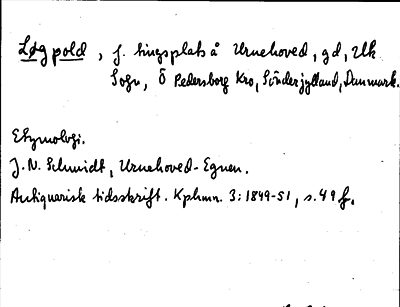 Løgpold, f. tingsplats å Urnehoved, gd, Ulk
Sogn, Ö Pedersborg Kro, Sönderjylland, Danmark.
Etymologi.
J. N. Schmidt, Urnehoved-Egnen.
Antiquarisk tidsskrift. Kphmn. 3: 1849-51, s. 49 f.